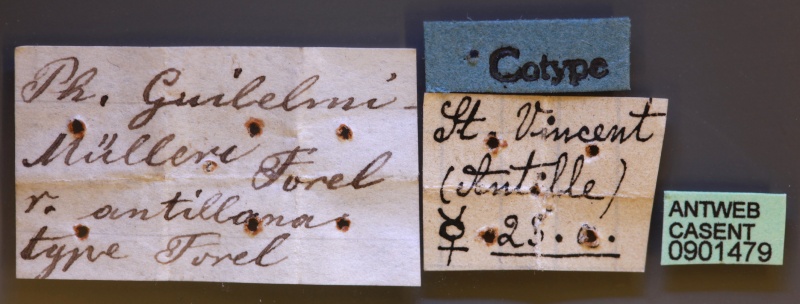 Ph. Guilelmi-
Mülleri Forel
r. antillana
type Forel
Cotype
St. Vincent
(Antille)
☿ 25. a.
ANTWEB
CASENT
0901479